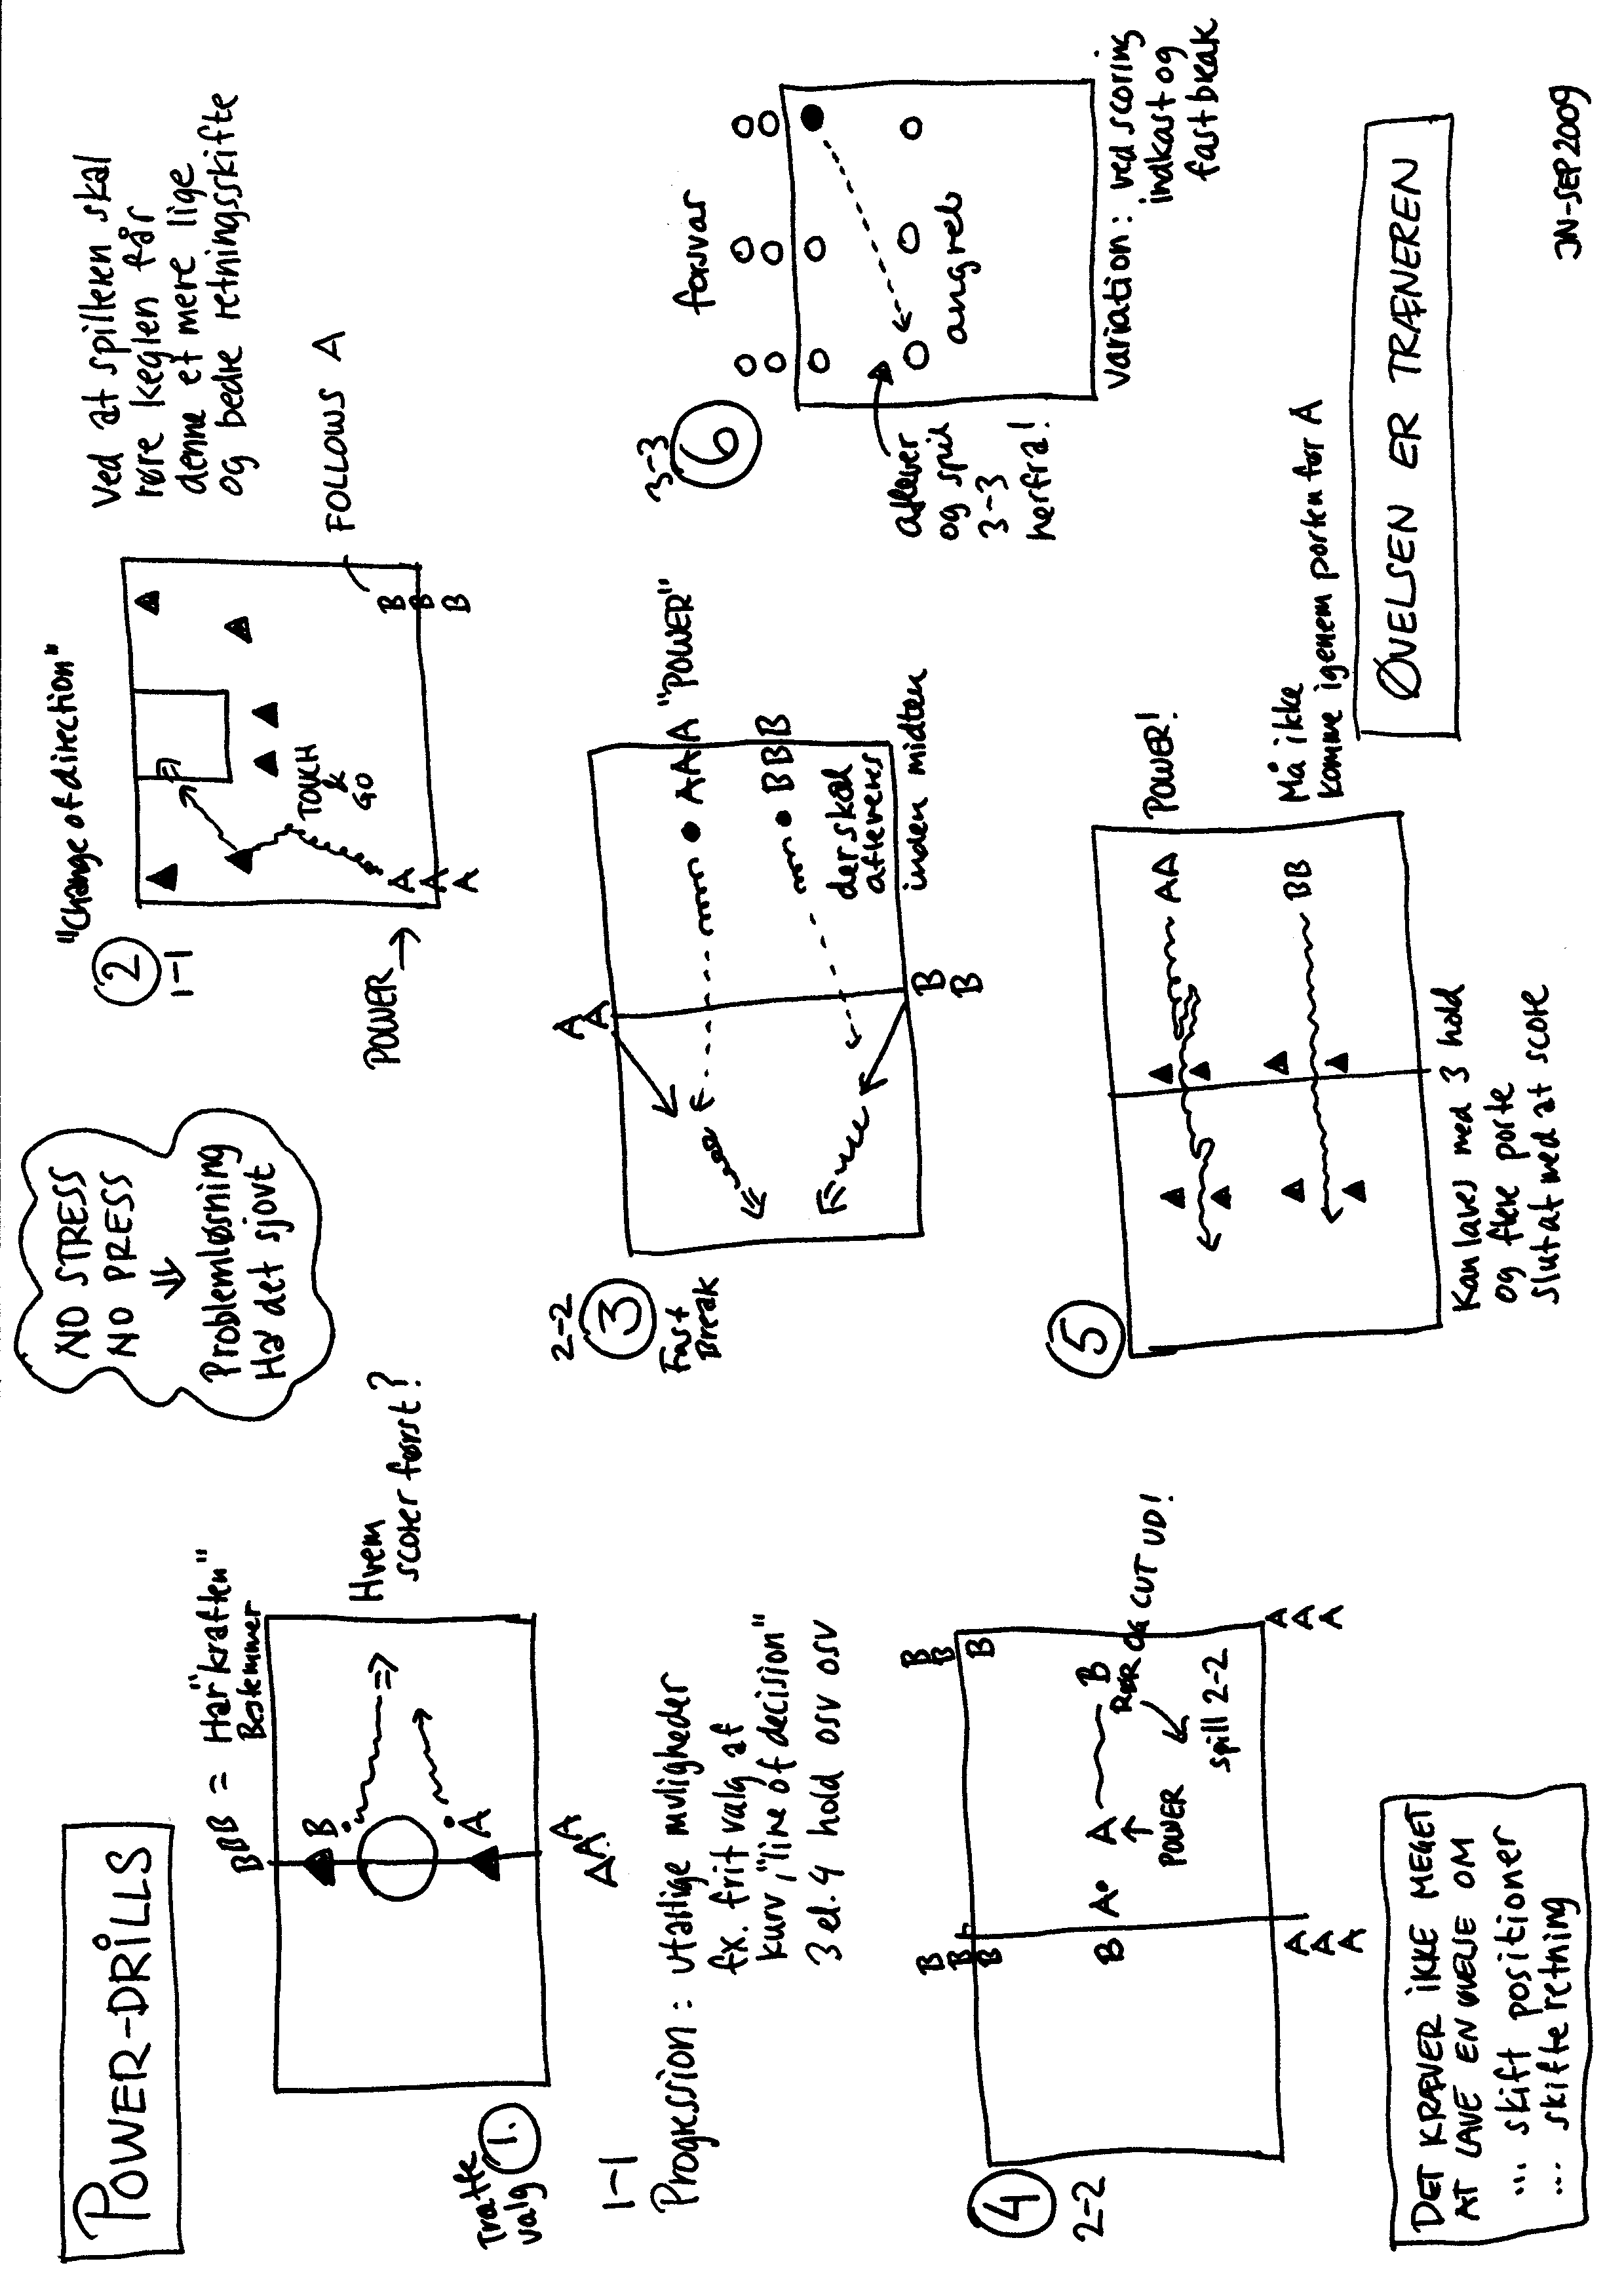 POWER-DRILLS
NO STRESS
NO PRESS
Problemløsning
Ha' det sjovt
BBB = Har "kraften"
Bestemmer
B
A
A
A
A
Hvem
scorer først?
Træffe
valg
1.
1-1
Progression: utallige muligheder
fx. frit valg af
kurv, "line of decision"
3 el. 4 hold osv osv
"Change of direction"
2
1-1
POWER
TOUCH
&
GO
A
A
A
B
B
B
FOLLOWS A
Ved at spilleren skal
røre keglen får
denne et mere lige
og bedre retningsskifte
2-2
3
Fast
Break
A
A
AAA "POWER"
BBB
der skal
afleveres
inden midten
B
B
3-3
6
forsvar
angreb
aflever
og spil
3-3
herfra!
Variation: ved scoring
indkast og
fastbreak
4
2-2
B
B
B
B
B
B
B
A
A
B
RØR OG CUT UD!
POWER
spill 2-2
A
A
A
A
A
A
5
AA POWER!
BB
Må ikke
komme igenem porten før A
Kan laves med 3 hold
og flere porte
slut at med at score
DET KRÆVER IKKE MEGET
AT LAVE EN ØVELSE OM
... skift positioner
... skifte retning
ØVELSEN ER TRÆNEREN
JN-SEP 2009